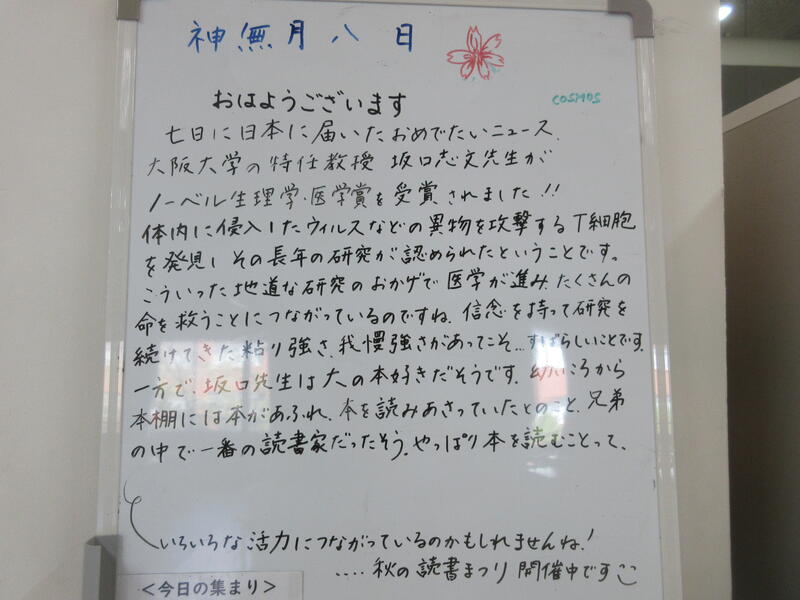 神無月八日
おはようございます
COSMOS
七日に日本に届いたおめでたいニュース、
大阪大学の特任教授 坂口志文先生が
ノーベル生理学・医学賞を受賞されました!!
体内に侵入したウィルスなどの異物を攻撃するT細胞
を発見し その長年の研究が認められたということです。
こういった地道な研究のおかげで医学が進み、たくさんの
命を救うことにつながっているのですね。信念を持って研究を
続けてきた粘り強さ、我慢強さがあってこそ…すばらしいことです。
一方で、坂口先生は大の本好きだそうです。幼いころから
本棚には本があふれ、本を読みあさっていたとのこと、兄弟
の中で一番の読書家だったそう。やっぱり本を読むことって、
いろいろな活力につながっているのかもしれませんね!
‥‥秋の読書まつり 開催中です
<今日の集まり>